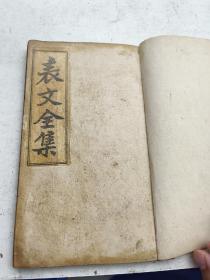 表文全集